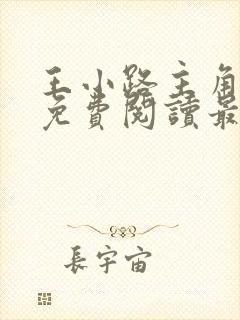 王小路主角
免費閱讀最
長宇宙